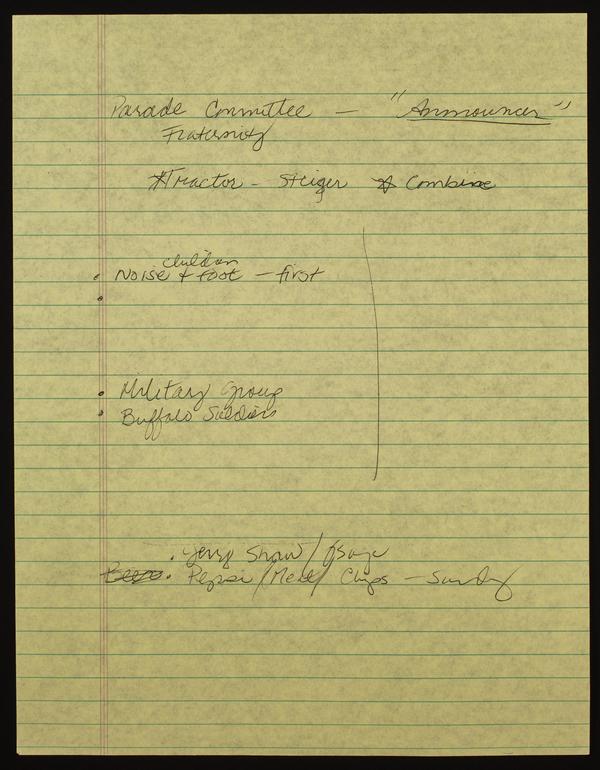 Parade Committee — "Announcer"
Fraternity
*Tractor - Steiger * Combine
children
• Noise & foot - first
•
• Military Group
• Buffalo Soldiers
• Jerry Shaw / Osage
• Pepsi / Meat / Chips - Sandy